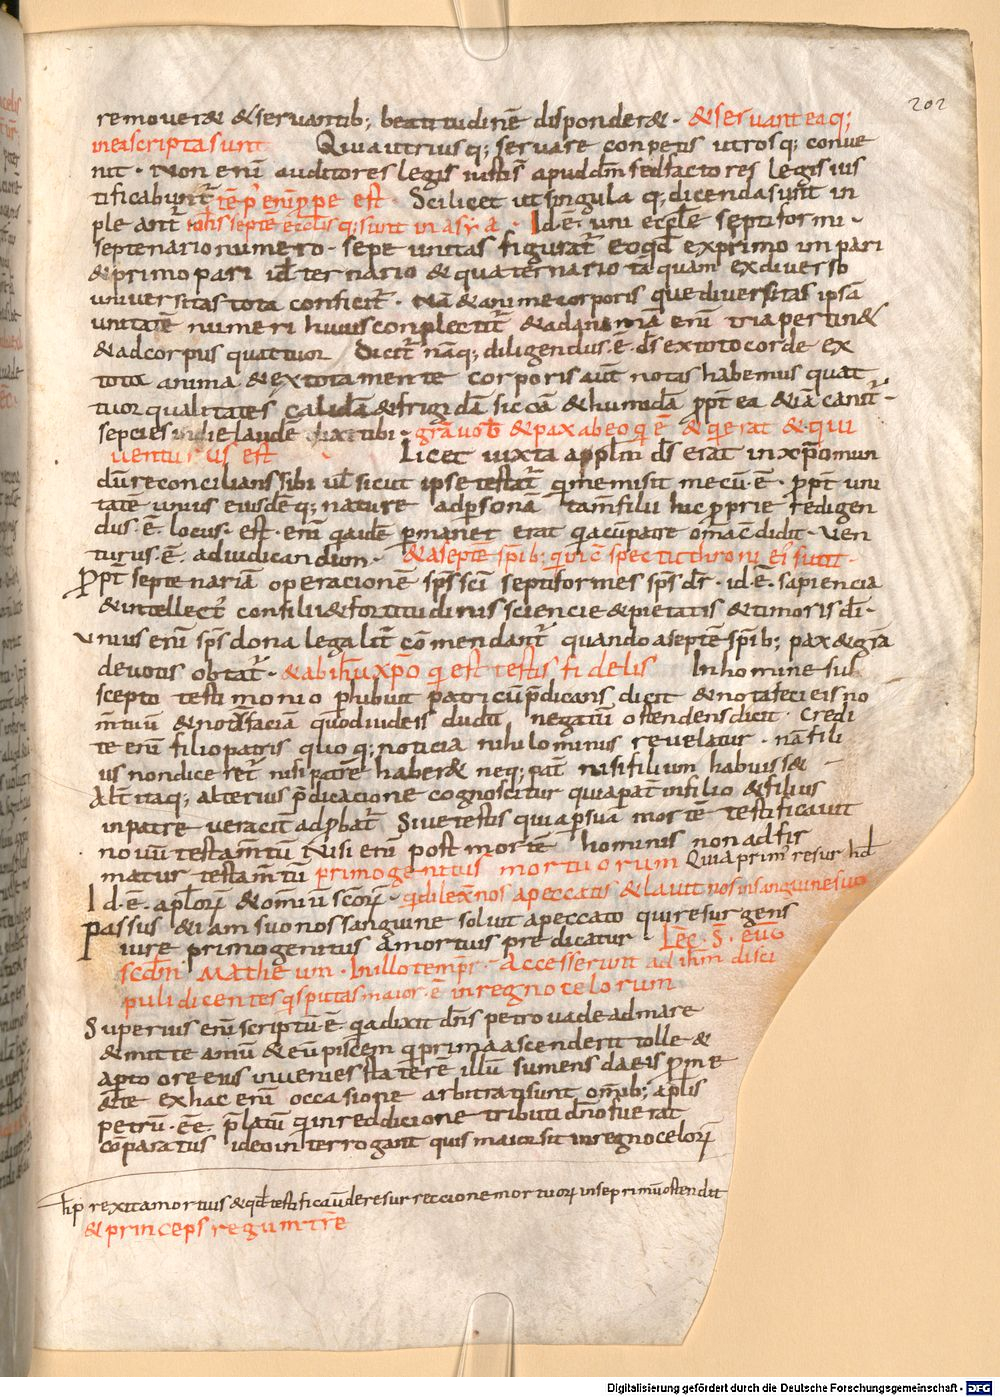 202
remouerae &seruantib; beatitudinē disponderae · &seruanteaq;
ineascriptasunt Quiautriusq; seruare conpetis utrosq; conue
nit · Non enī auditores legis iustisī apuddm̄ sedfactores legis ius
tificabunt̄ tēp̄ enī ppe est · Scilicet utsingula q; dicendasunt in
ple ant̄ ioh̄s septē ecclis q; sunt in asya · Id·ē· uni eccle septiformi ·
septenarionumero · sepe unitas figurat̄ eoqd̄ exprimo inpari
&primopari id̄ ternario &quaternario tā quam exdiuerso
uniuersitastota conficit̄ · Nā &animecorporis quediuersitas ipsā
unitatē numeri huiusconplectit̄ &adanimā enī triapertin&
&adcorpus quattuor Dicit̄ nāq; diligendus·ē· ds̄ extotocorde ex
tota anima &extotamente corporis aūt notas habemus quat
tuorqualitates calidā&frigidā siccā &humidā ppt̄ ea &iā canit̄ ·
sepcies indie laudē dixi tibi · grā uob̄ &pax abeoq̄ ē &q̄ erat &qui
uenturus est Licet iuxta applm̄ ds̄ erat inxp̄omun
dū reconcilianssibi ul̄ sicut ipse testat̄ q̄memisit mecū·ē· ppt̄ uni
tatē unius eiusdēq; nature adpsonā tam̄ filii hic pprie redigen
dus·ē· locus· est · enī q̄aidē pmanet erat q̄acūpatre om̄acdidit · Uen
turus·ē· adiudicandum · &aseptē spib; q̄ inc̄ spectuthroni ei' sunt ·
Ppt̄ septenariā operacionē sps̄ sci septiformes sps̄ dr̄ · id·ē· sapiencia
&intellect' consilii&fortitudinis sciencie &pietatis &timoris di ·
Unius enī sps̄ dona legalit̄ cō mendant̄ quando aseptē spib; pax&grā
deuotis obtat̄ · &abihū xp̄o q̄ est testis fidelis Inhomine sus
scepto testimonio phibuit patri cūpdicans dicit &notafecieisno
m̄ tuū &notūfaciā quodiudeis dudū negatū ostendensdicit · Credi
te enī filiopatris quoq; noticia nihilominus reuelatur · nā fili
us nondiceret̄ nisi patrē haber& neq; pat̄ nisifilium habuiss&
Alt̄ itaq; alterius pdicacione cognoscitur quiapat infilio &filius
inpatre ueracit̄ adpbat̄ Siuetestis quiapsuā mortē testificauit
nouū testam̄tū Nisi enī post mortē hominis nonadfir
matur testam̄tū primogenitus mortuorum Quiaprim' resur hd̄
Id·ē· aplorꝝ &omiū scorꝝ · q̄dilexnos apeccatis &lauit nosinsanguinesuo
Passus &iam suonossanguine soluit apeccato quiresurgens
iure primogenitus amortuis predicatur · Lec̄ · S · euḡ
scdm̄ Matheum · Inillo tempr̄ · Accesserunt ad ihm̄ disci
puli dicentes q̄sputasmaior·ē· inregnocelorum
Superius enī scriptū·ē· q̄adixit dn̄s petro uadeadmare
&mitte amū &eūpiscem q̄primaascenderit tolle &
apto oreeius inuenies staterē illū sumens daeis pme
&te exhac enī occasione arbitratisunt om̄ib; aplis
petrū·ēē· platū q̄inreddicione tributi dn̄ofuerat
cōparatus ideointerrogant quis maiorsit inregnocelorꝝ
hd̄ p rexitamortuis &qd̄testificaūderesurreccionemortuorꝝ inseprimūostendit
&princeps regumtr̄e
Digitalisierung gefördert durch die Deutsche Forschungsgemeinschaft - DFG